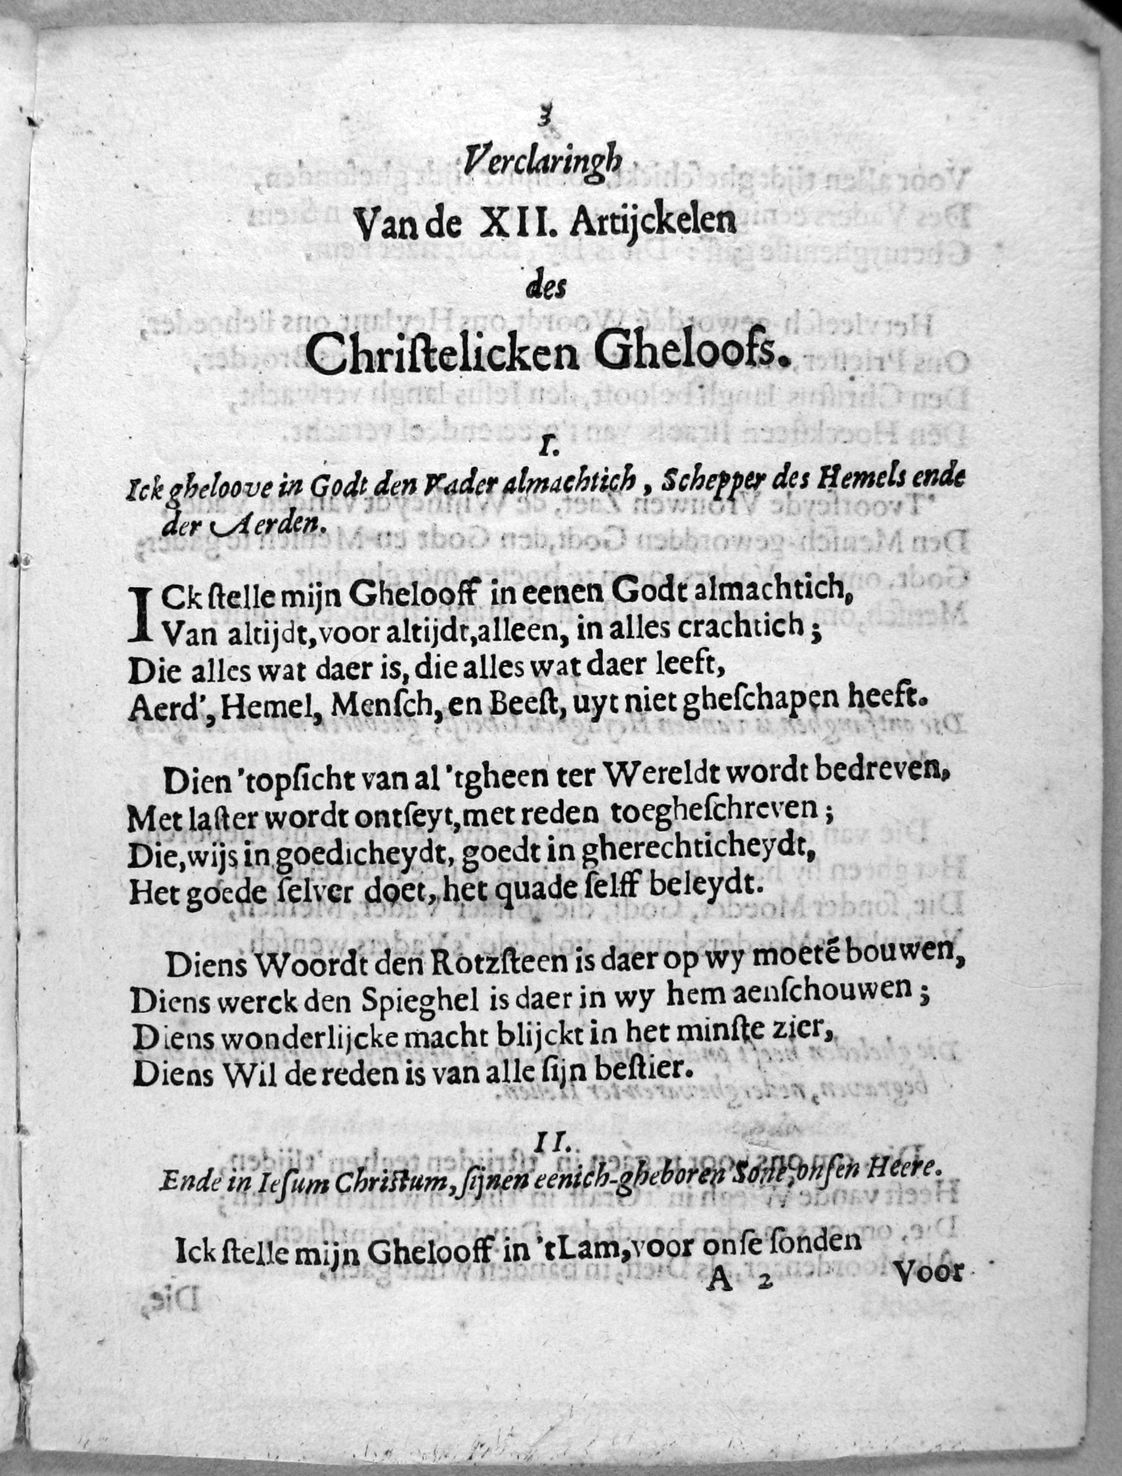 3
Verclaringh
Van de XII. Artijckelen
des
Chriſtelicken Gheloofs.
I.
Ick gheloove in Godt den Vader almachtich, Schepper des Hemels ende
der Aerden.
ICk ſtelle mijn Ghelooff in eenen Godt almachtich,
Van altijdt, voor altijdt, alleen, in alles crachtich;
Die alles wat daer is, die alles wat daer leeft,
Aerd', Hemel, Menſch, en Beeſt, uyt niet gheſchapen heeft.
Dien 'topſicht van al 'tgheen ter Wereldt wordt bedreven,
Met laſter wordt ontſeyt, met reden toegheſchreven;
Die, wijs in goedicheydt, goedt in gherechticheydt,
Het goede ſelver doet, het quade ſelff beleydt.
Diens Woordt den Rotzſteen is daer op wy moetẽ bouwen,
Diens werck den Spieghel is daer in wy hem aenſchouwen;
Diens wonderlijcke macht blijckt in het minſte zier,
Diens Wil de reden is van alle ſijn beſtier.
II.
Ende in Ieſum Chriſtum, ſijnen eenich-gheboren Sone, onſen Heere.
Ick ſtelle mijn Ghelooff in 'tLam, voor onſe ſonden
A 2 Voor